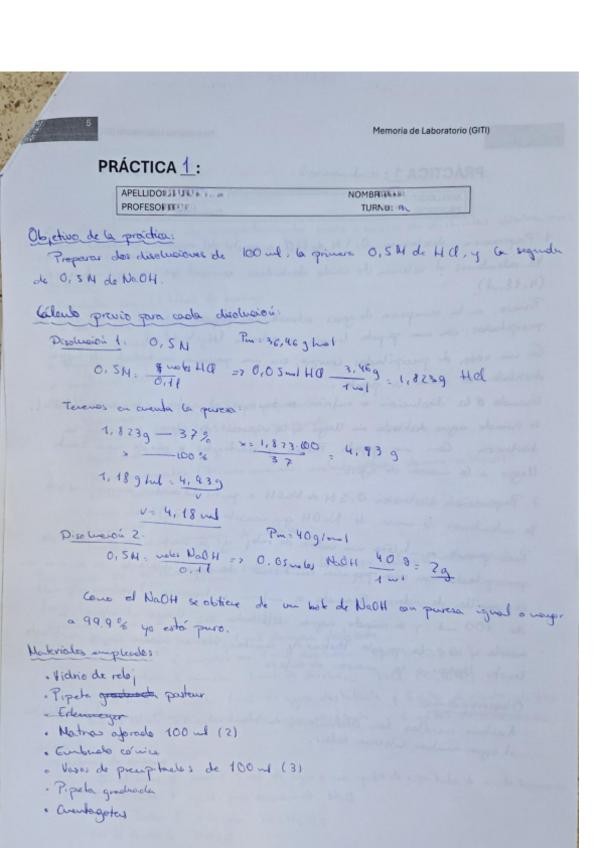 5
Memoria de Laboratorio (GITI)
PRÁCTICA 1:
APELLIDO NOMBR
PROFESO TURNO:
Objetivo de la práctica:
Preparar dos disoluciones de 100 ml, la primera 0,5M de HCl, y la segunda
de 0,5M de NaOH.
Cálculo previo para cada disolución:
Disolución 1: 0,5M Pm=36,46 g/mol
0,5M = moles HCl / 0,1l => 0,05mol HCl 3,46g / 1mol = 1,823g HCl
Tenemos en cuenta la pureza:
1,823g — 37%
x — 100% x = 1,823·100 / 37 = 4,93 g
1,18 g/ml = 4,93g / v
v = 4,18 ml
Disolución 2: Pm=40g/mol
0,5M = moles NaOH / 0,1l => 0.05moles NaOH 40g / 1mol = 2g
Como el NaOH se obtiene de un bote de NaOH con pureza igual o mayor
a 99,9% ya está puro.
Materiales empleados:
• Vidrio de reloj
• Pipeta graduada pasteur
• Erlenmeyer
• Matraz aforado 100 ml (2)
• Embudo cónico
• Vasos de precipitados de 100 ml (3)
• Pipeta graduada
• Cuentagotas